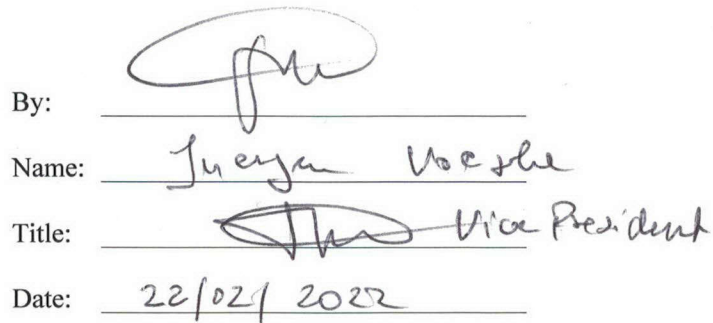 By:
Name: Juergen
Title: Vice President
Date: 22/02/2022